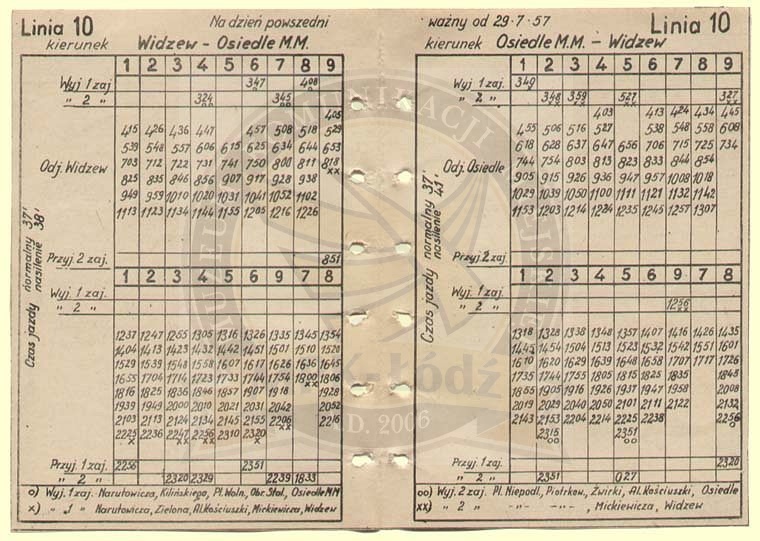 Linia 10 Na dzień powszedni
kierunek Widzew - Osiedle M.M.
1 2 3 4 5 6 7 8 9
Wyj 1 zaj 347 408
" 2 " 324 345
405
415 426 436 447 457 508 518 529
539 548 557 606 615 625 634 644 653
Odj. Widzew 703 712 722 731 741 750 800 811 818 xx
825 835 846 856 907 917 928 938
949 959 1010 1020 1031 1041 1052 1102
1113 1123 1134 1144 1155 1205 1216 1226
Przyj 2 zaj. 851
Czas jazdy normalny 37' nasilenie 38'
1 2 3 4 5 6 7 8 9
Wyj 1 zaj.
" 2 "
1237 1247 1255 1305 1316 1326 1335 1345 1354
1404 1413 1423 1432 1442 1451 1501 1510 1520
1529 1539 1548 1558 1607 1617 1626 1636 1645
1655 1704 1714 1723 1733 1744 1754 1800 1806
1816 1825 1836 1846 1857 1907 1918 1928
1939 1949 2000 2010 2021 2031 2042 2052
2103 2113 2124 2134 2145 2155 2206 2216
2225 2236 2247 2256 2310 2320
Przyj. 1 zaj 2256 2351
" 2 " 2320 2329 2239 1833
o) Wyj. 1 zaj. Narutowicza, Kilińskiego, Pl. Woln., Obr. Stal., Osiedle MM
x) " 1 " Narutowicza, Zielona, Al. Kościuszki, Mickiewicza, Widzew
ważny od 29·7·57 Linia 10
kierunek Osiedle M.M. - Widzew
1 2 3 4 5 6 7 8 9
Wyj 1 zaj. 340
" 2 " 348 359 527 327 xx
403 413 424 434 445
455 506 516 527 538 548 558 608
618 628 637 647 656 706 715 725 734
Odj. Osiedle 744 754 803 813 823 833 844 854
905 915 926 936 947 957 1008 1018
1029 1039 1050 1100 1111 1121 1132 1142
1153 1203 1214 1224 1235 1245 1257 1307
Przyj 2 zaj
Czas jazdy normalny 37' nasilenie 41'
1 2 3 4 5 6 9 7 8
Wyj. 1 zaj.
" 2 " 1256 xx
1318 1328 1338 1348 1357 1407 1416 1426 1435
1445 1454 1504 1513 1523 1532 1542 1551 1601
1610 1620 1629 1639 1648 1658 1707 1717 1726
1735 1744 1755 1805 1815 1825 1835 1845
1855 1905 1916 1926 1937 1947 1958 2008
2019 2029 2040 2050 2101 2111 2122 2132
2143 2153 2204 2214 2225 2238 2256
2315 oo 2351 oo
Przyj. 1 zaj 2320
" 2 " 2351 027
oo) Wyj. 2 zaj. Pl. Niepodl., Piotrkow., Żwirki, Al. Kościuszki, Osiedle
xx) " 2 " -"- -"- , Mickiewicza, Widzew